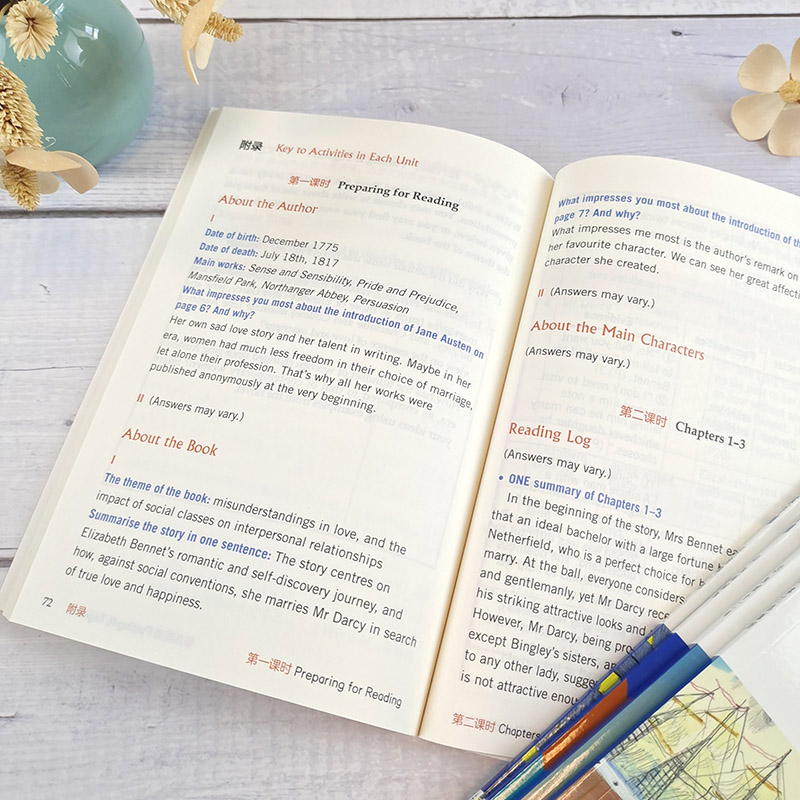 附录 Key to Activities in Each Unit
第一课时 Preparing for Reading
About the Author
I
Date of birth: December 1775
Date of death: July 18th, 1817
Main works: Sense and Sensibility, Pride and Prejudice,
Mansfield Park, Northanger Abbey, Persuasion
What impresses you most about the introduction of Jane Austen on
page 6? And why?
Her own sad love story and her talent in writing. Maybe in her
era, women had much less freedom in their choice of marriage,
let alone their profession. That's why all her works were
published anonymously at the very beginning.
II (Answers may vary.)
About the Book
I
The theme of the book: misunderstandings in love, and the
impact of social classes on interpersonal relationships
Summarise the story in one sentence: The story centres on
Elizabeth Bennet's romantic and self-discovery journey, and
how, against social conventions, she marries Mr Darcy in search
of true love and happiness.
72 附录
第一课时 Preparing for Reading
What impresses you most about the introduction of the
page 7? And why?
What impresses me most is the author's remark on
her favourite character. We can see her great
character she created.
II (Answers may vary.)
About the Main Characters
(Answers may vary.)
第二课时 Chapters 1–3
Reading Log
(Answers may vary.)
• ONE summary of Chapters 1–3
In the beginning of the story, Mrs Bennet
that an ideal bachelor with a large fortune
Netherfield, who is a perfect choice for
marry. At the ball, everyone
and gentlemanly, yet Mr Darcy
his striking attractive looks and
However, Mr Darcy, being
except Bingley's sisters,
to any other lady,
is not attractive
第二课时 Chapters